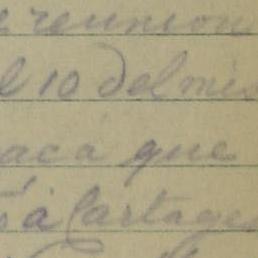 reunion
el 10 del mis
acá que
á Cartage